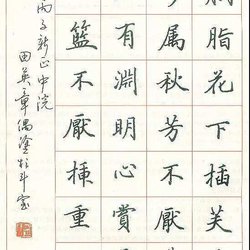 脂花下插芙
属秋芳不厭
有淵明心賞
籃不厭插重
丙子新正中院
田英章偶塗於斗室